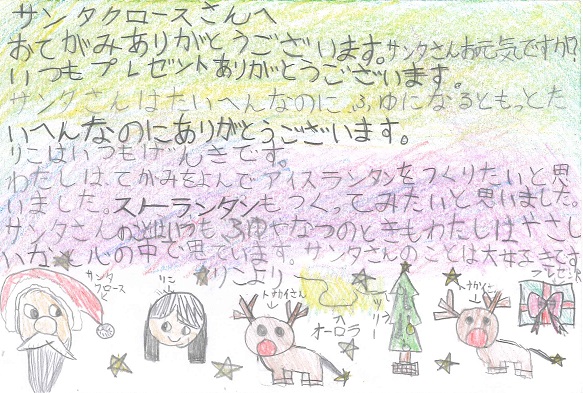 サンタクロースさんへ
おてがみありがとうございます。サンタさんお元気ですか?
いつもプレゼントありがとうございます。
サンタさんはたいへんなのに、ふゆになるともっとた
いへんなのにありがとうございます。
りこはいつもげんきです。
わたしは、てがみをよんでアイスランタンをつくりたいと思
いました。スノーランタンもつくってみたいと思いました。
サンタさんのことはいつもふゆやなつのときもわたしはやさし
いかなと心の中で思っています。サンタさんのことは大好きです
りこより
サンタ
クロース
りこ
トナカイさん
オーロラ
ツリー
トナカイ
プレゼント